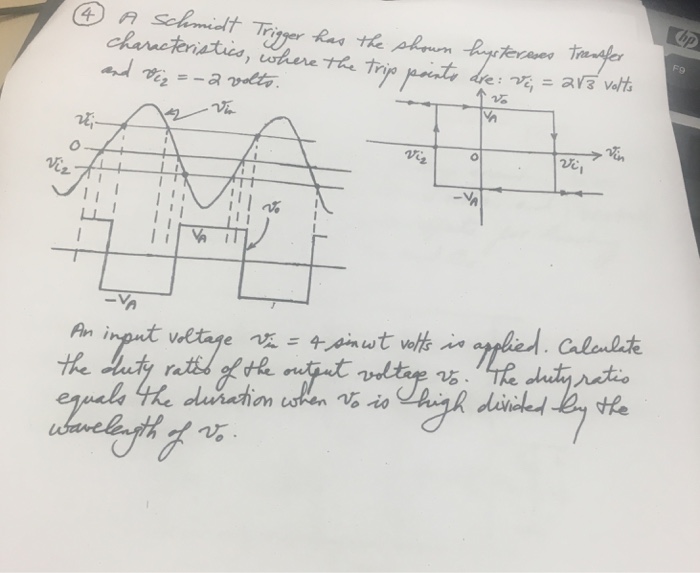 ④ A Schmidt Trigger has the shown hystereses Transfer
characteristics, where the trip points are: vi₁ = 2√3 volts
and vi₂ = -2 volts.
vi₁
vin
0
vi₂
vo
VA
-VA
vo
VA
vi₂
0
vi₁
vin
-VA
An input voltage vin = 4 sin wt volts is applied. Calculate
the duty ratio of the output voltage vo. The duty ratio
equals the duration when vo is high divided by the
wavelength of vo.
hp
F9